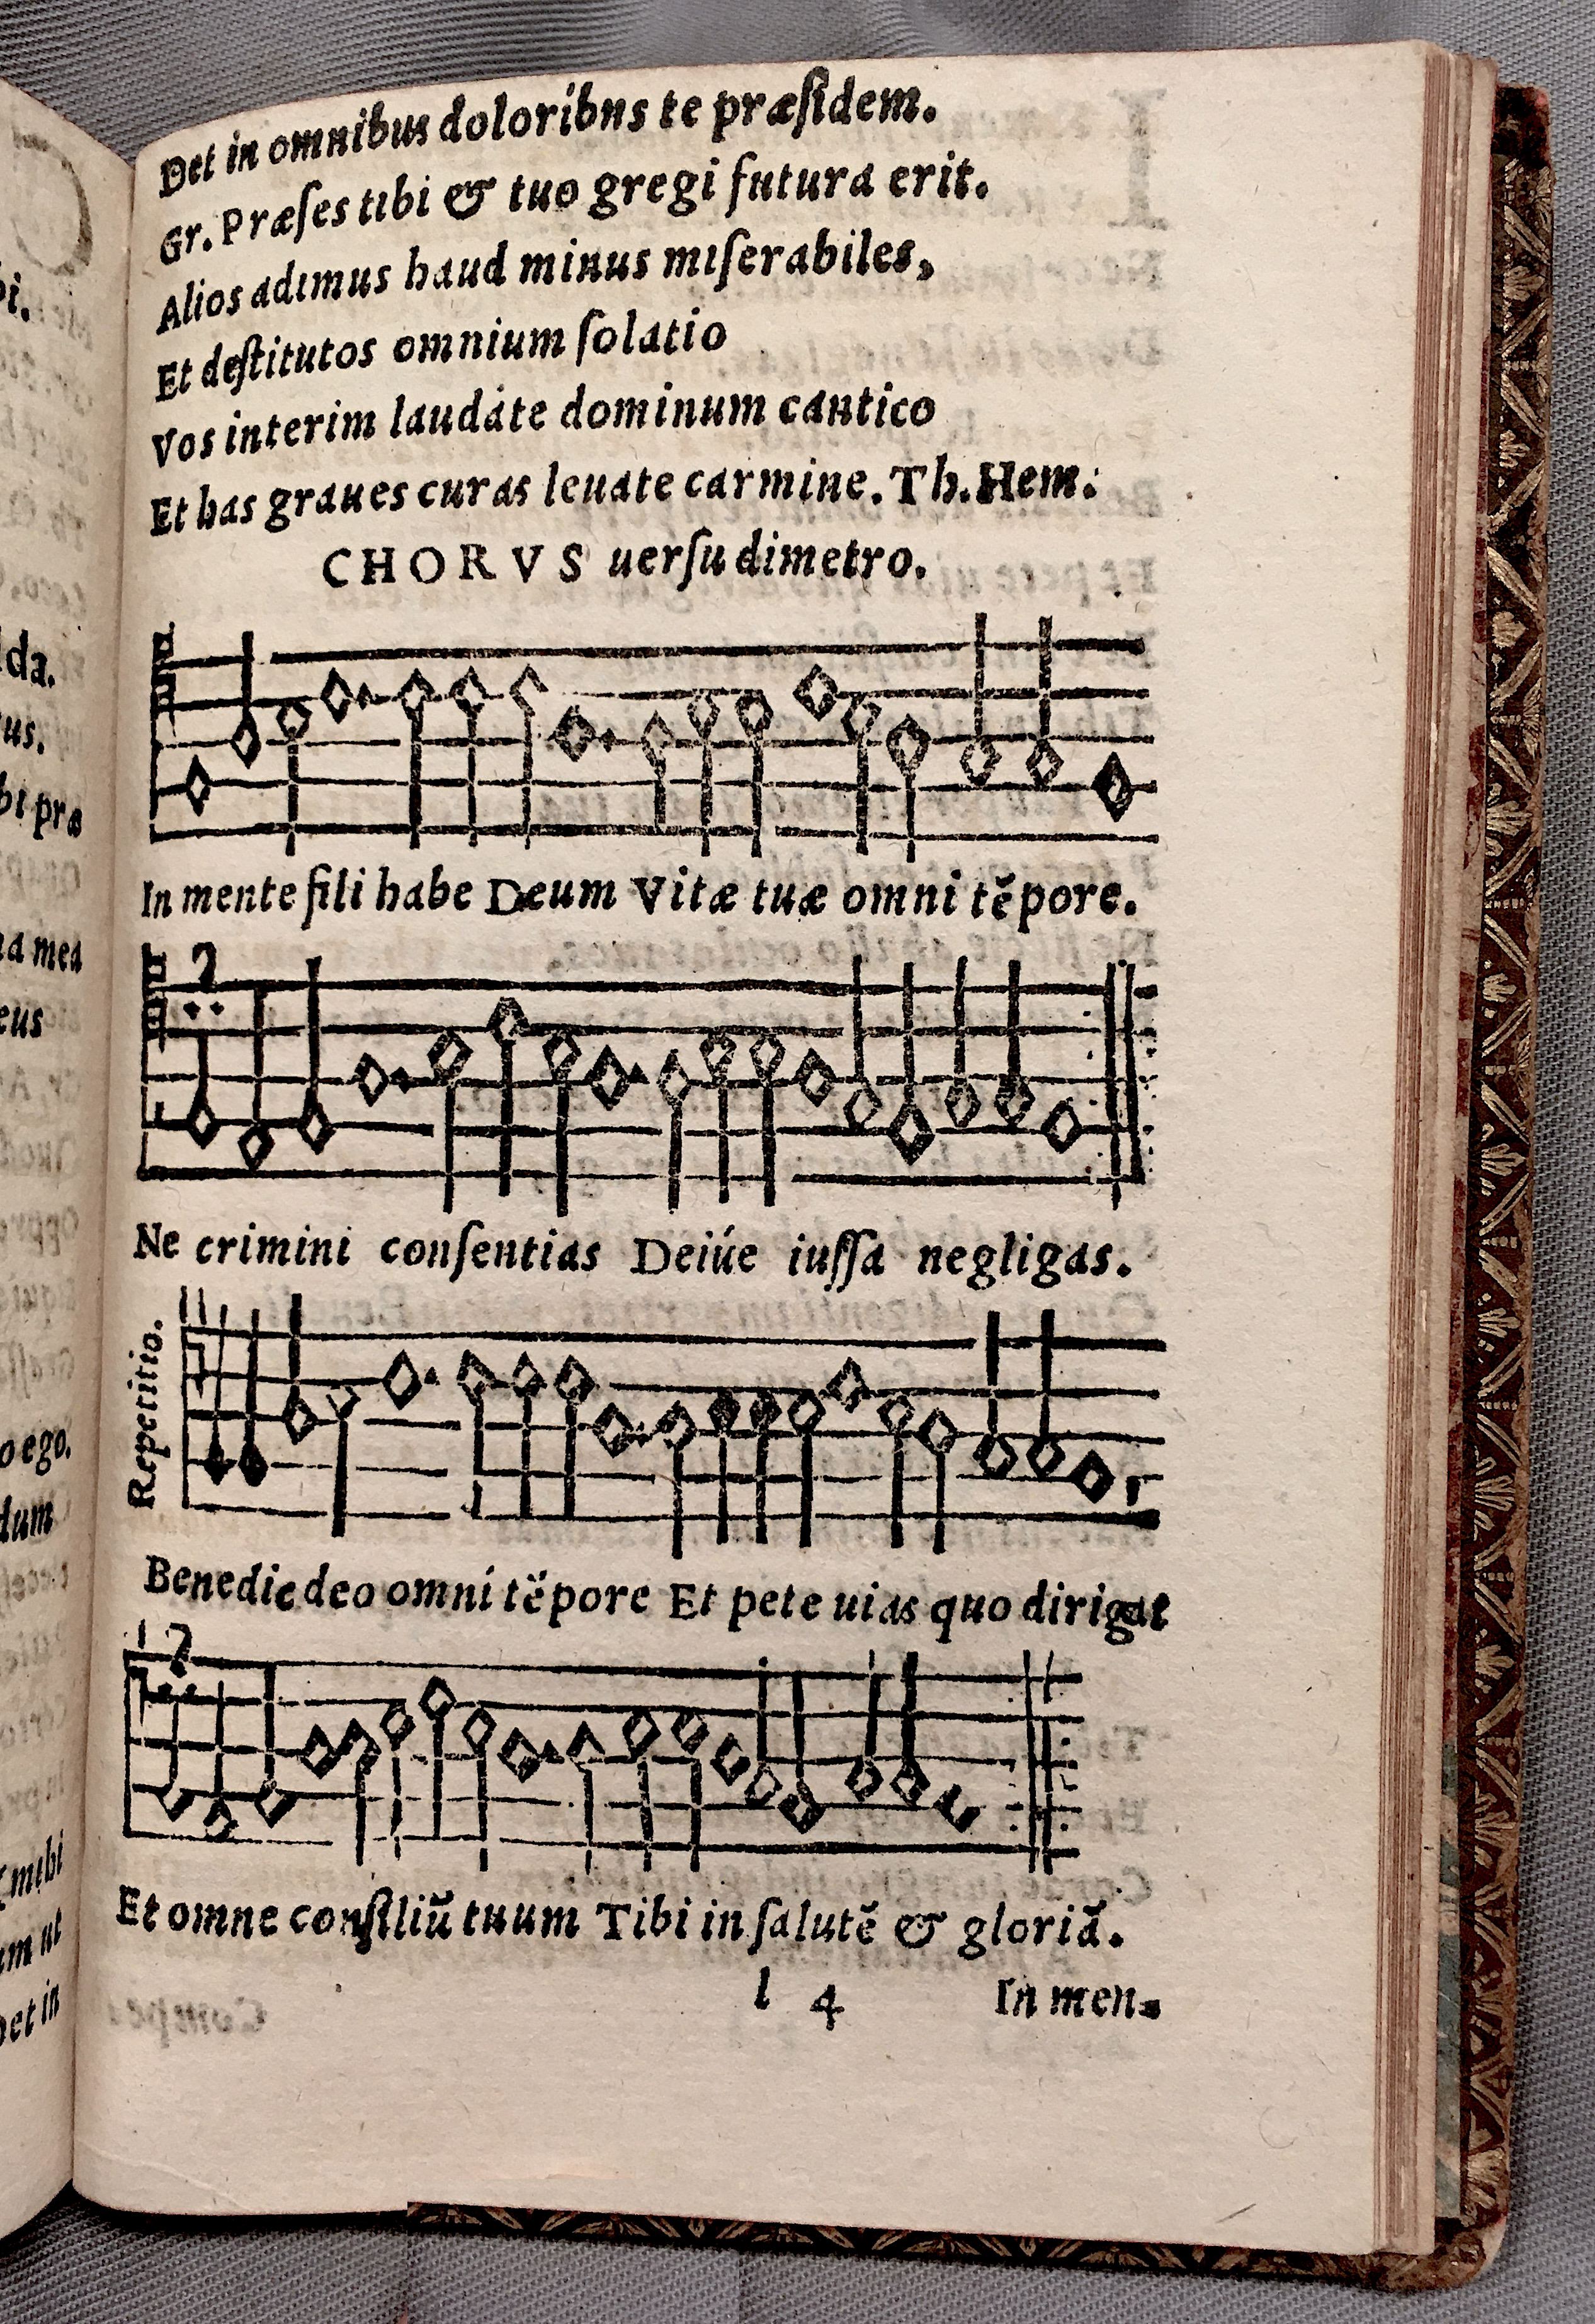 Det in omnibus doloribns te præſidem.
Gr. Præſes tibi & tuo gregi futura erit.
Alios adimus haud minus miſerabiles,
Et deſtitutos omnium ſolatio
Vos interim laudate dominum cantico
Et has graues curas leuate carmine. Th. Hem:
CHORVS uerſu dimetro.
In mente fili habe Deum Vitæ tuæ omni tẽpore.
Ne crimini conſentias Deiúe iuſſa negligas.
Repetitio.
Benedic deo omni tẽpore Et pete uias quo dirigat
Et omne conſiliũ tuum Tibi in ſalutẽ & gloriã.
l 4 In men-
bi.
da.
tus.
bi præ
na mea
eus
o ego.
dum
mihi
am ut
et in